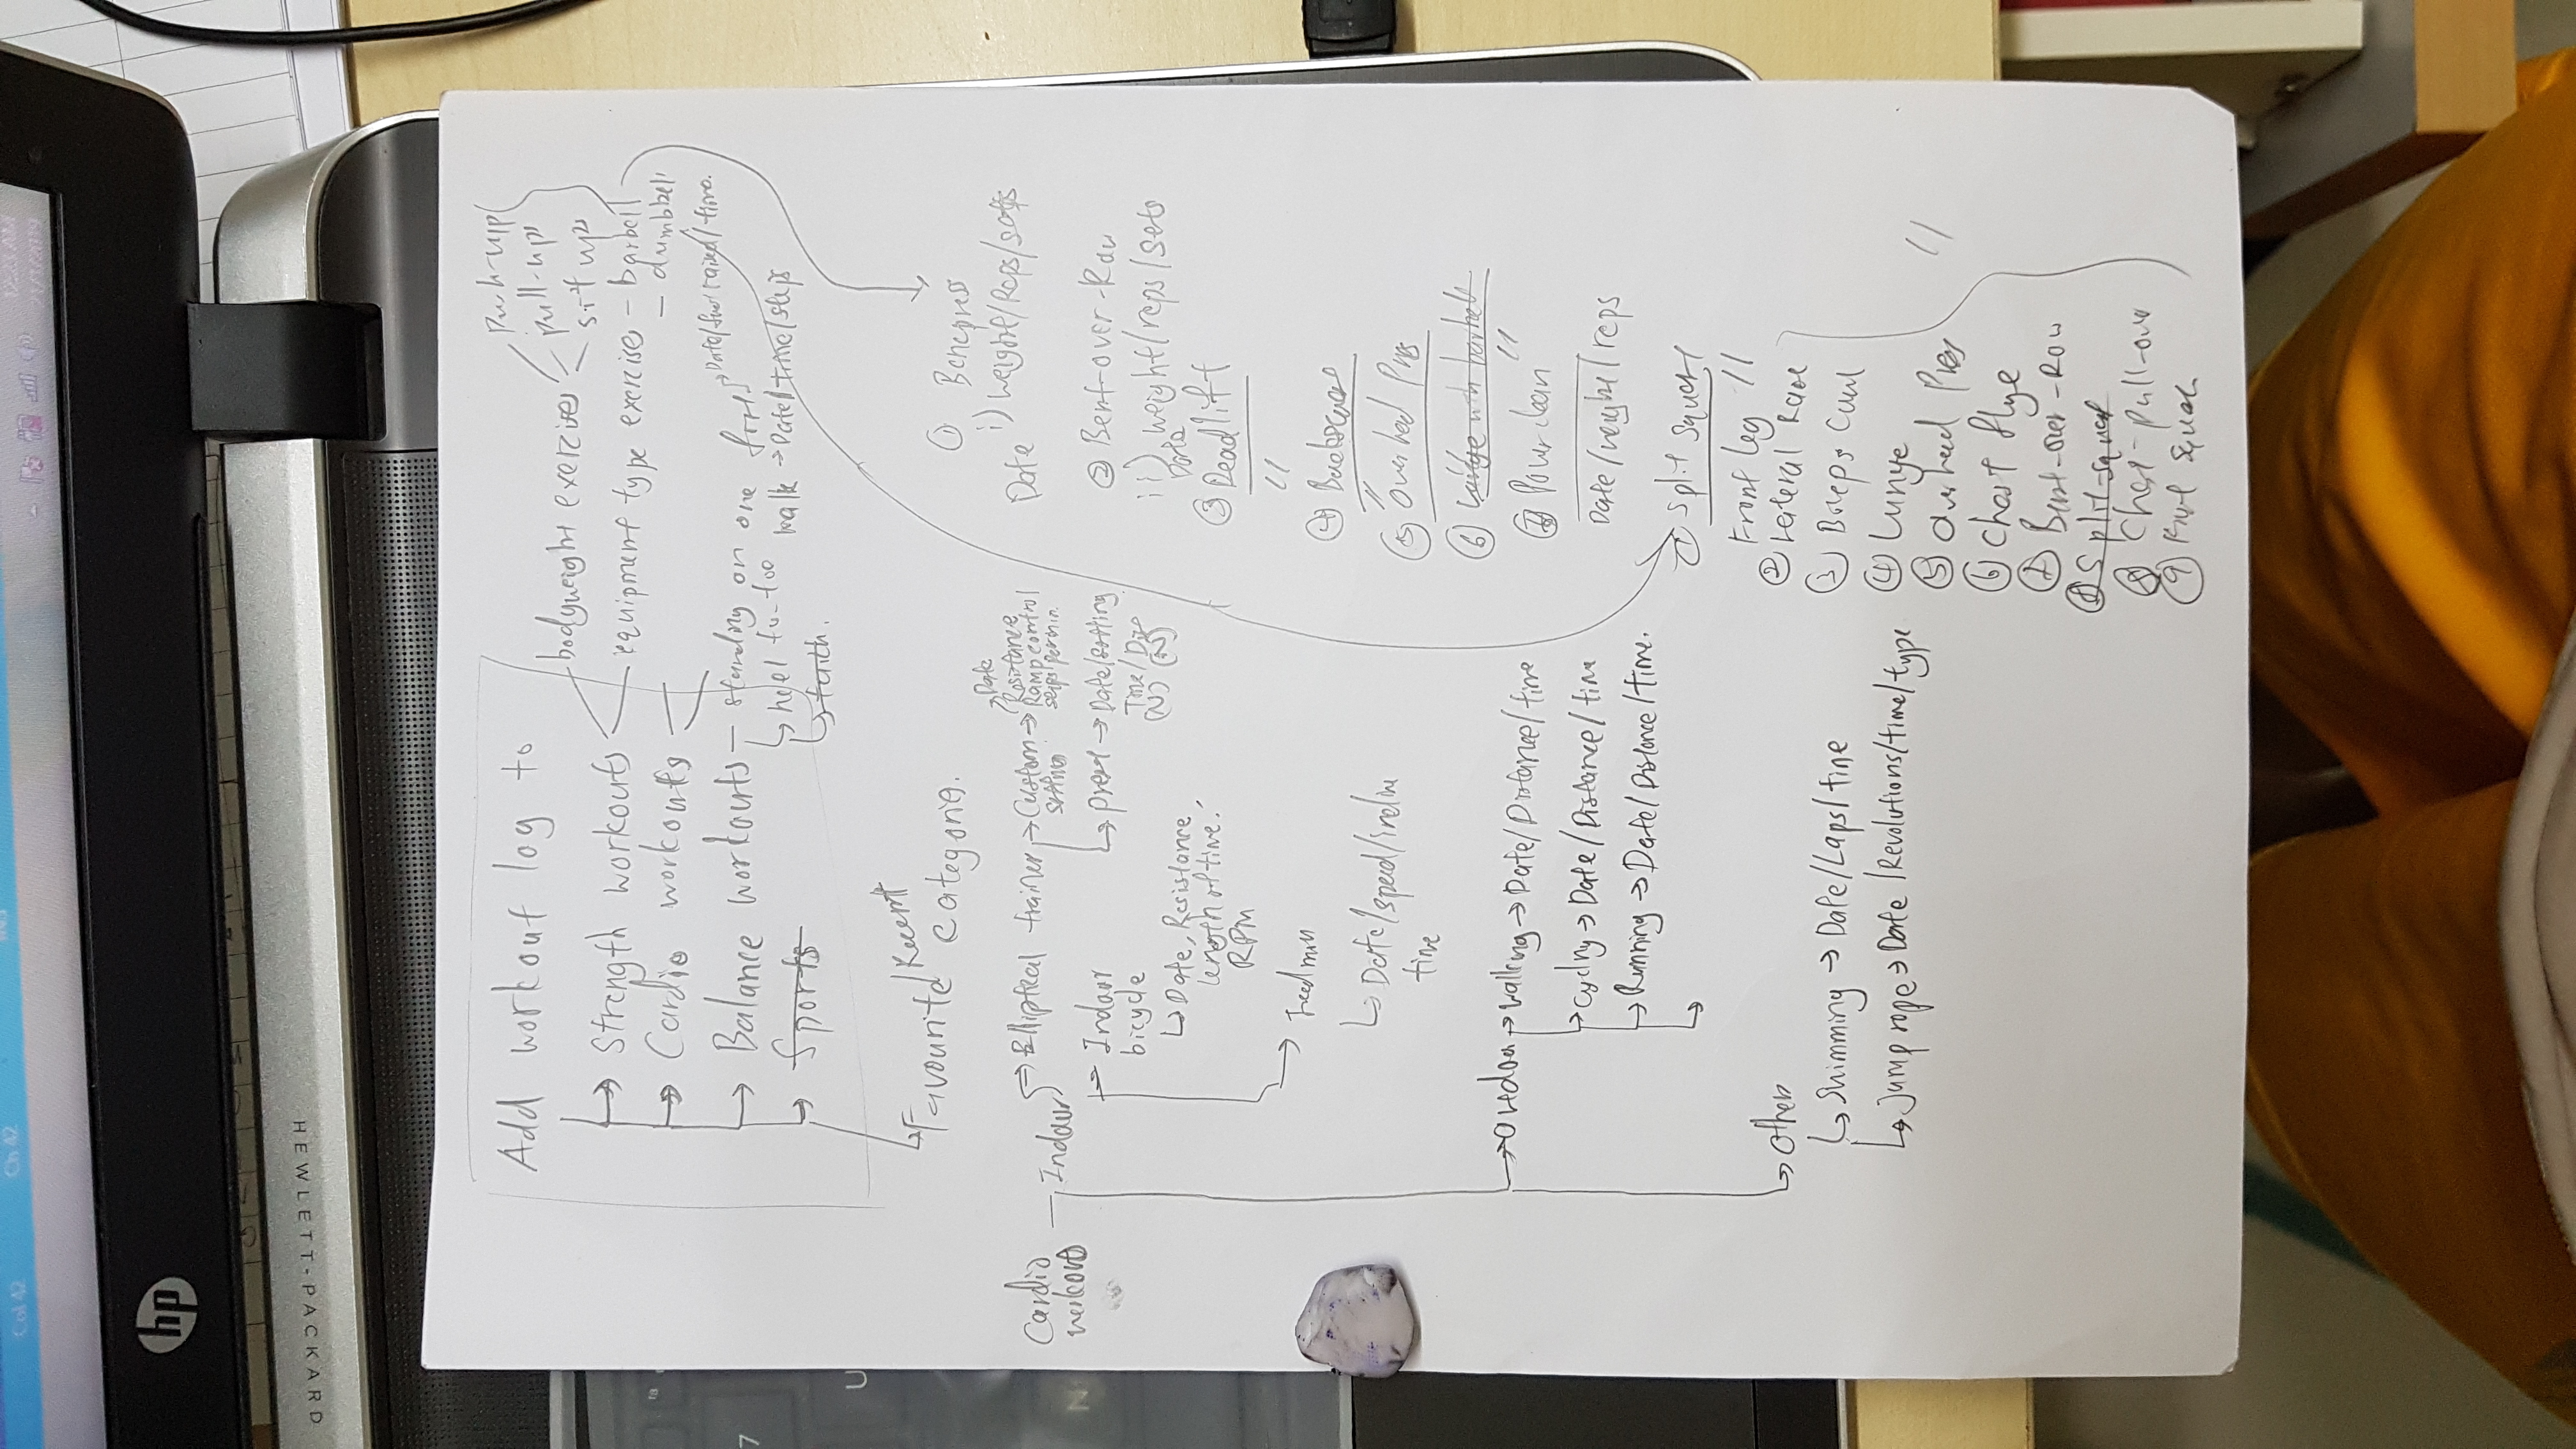 Col 42 Ch 42
12:23 AM
21/1/2019
hp
HEWLETT-PACKARD
7
U
N
Add workout log to
Strength workouts
bodyweight exercises
push-up
pull-ups
sit ups
equipment type exercises - barbell
- dumbbell
Cardio workouts
Balance workouts - standing on one foot
Date/ raised/time.
heel to-toe walk → Date/time/steps
Sports
Favourite/Recent
categoria.
Cardio
workout
Indoor
Elliptical trainer
Custom
setting
Date
Resistance
Ramp control
per min.
Date/setting
Time/
(N) (N)
Indoor
bicycle
Date, Resistance
length of time.
RPM
Date/speed/incline
time
walking → Date/Distance/time
cycling → Date/Distance/time
Running → Date/Distance/time.
Others
Date/Laps/time
Jump rope → Date/Revolutions/time/type
① Benchpress
Date i) weight/Reps/sets
② Bent-over-Row
ii) weight/reps/sets
Date
③ Deadlift
"
④
"
⑤ Overhead Press
⑥ with barbell
"
⑦ Power clean
Date/weight/reps
① Split Squat
Front leg "
② Lateral Raise
③ Biceps Curl
④ Lunge
⑤ Overhead Press
⑥ Chest flye
⑦ Bent-over-Row
⑧ Split-squat
⑧ Chest-pull-over
⑨ Squat
"